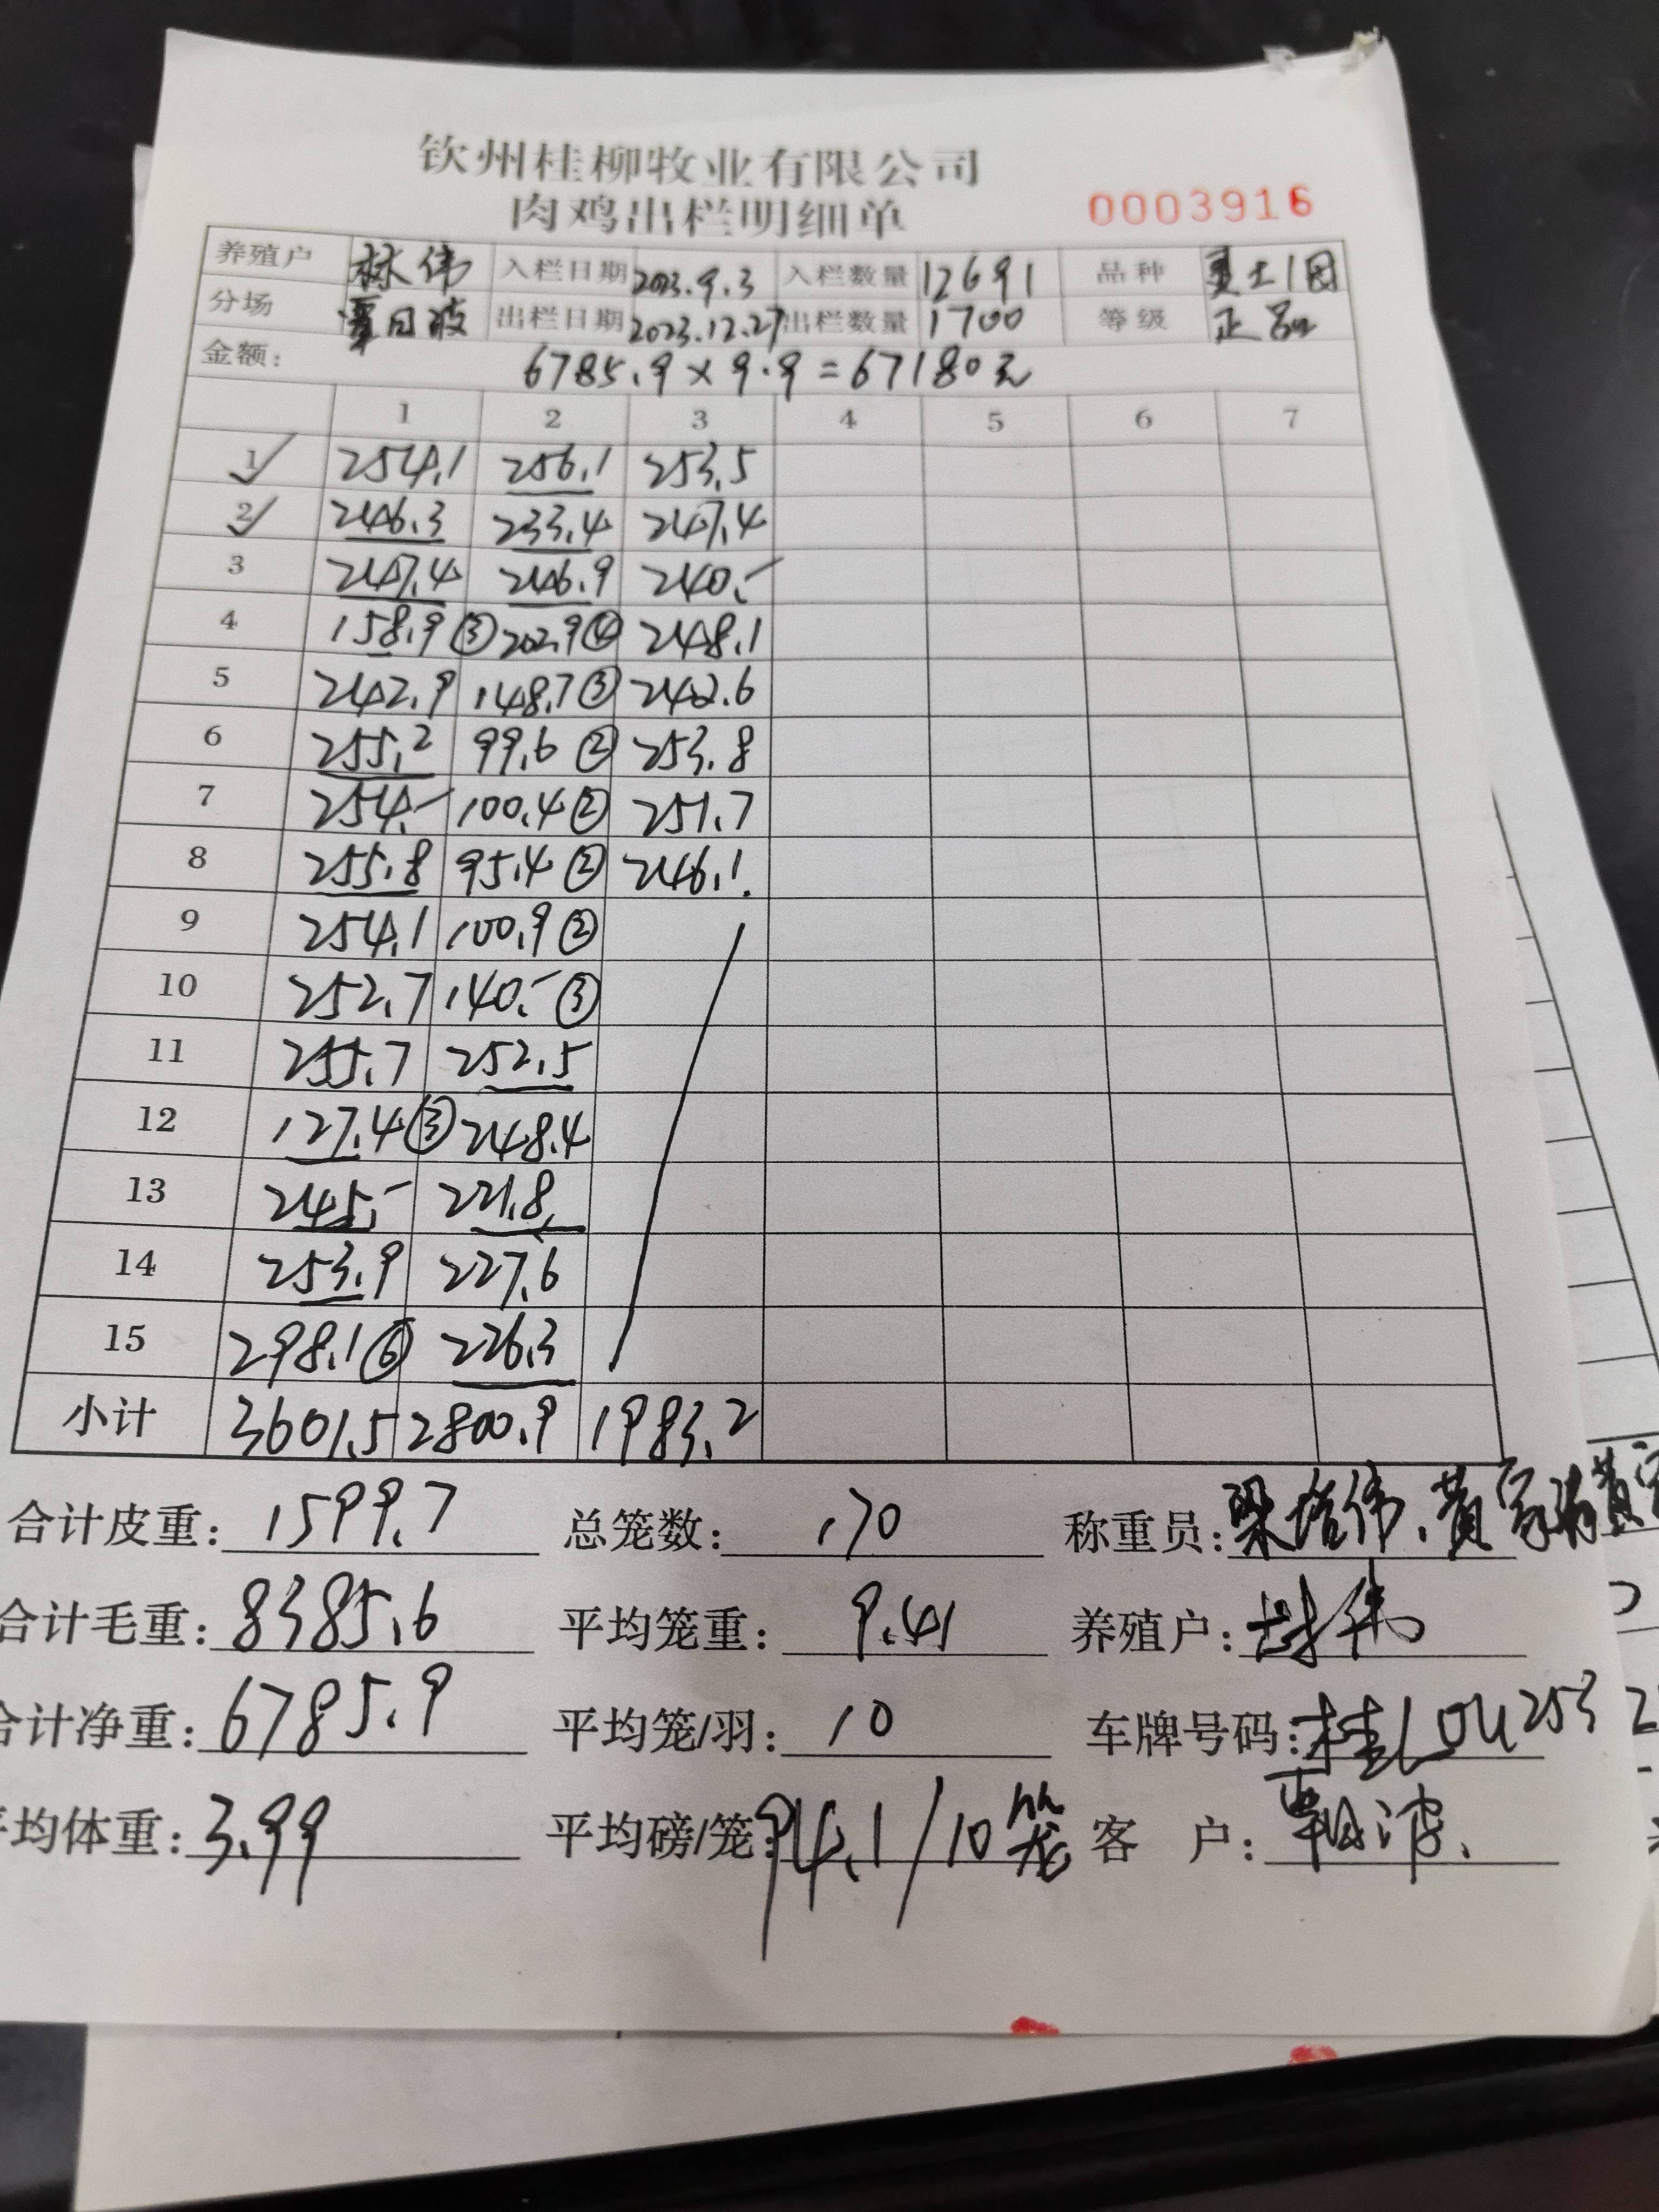 钦州桂柳牧业有限公司
肉鸡出栏明细单 0003916
养殖户 林伟 入栏日期 2023.9.3 入栏数量 12691 品种
分场 覃日波 出栏日期 2023.12.27 出栏数量 1700 等级 正品
金额: 6785.9×9.9=67180元
1 2 3 4 5 6 7
1 254.1 256.1 253.5
2 246.3 233.4 247.4
3 247.4 246.9 240.-
4 158.9③ 202.9④ 248.1
5 242.9 148.7③ 242.6
6 255.2 99.6② 253.8
7 254.- 100.4② 251.7
8 255.8 95.4② 246.1
9 254.1 100.9②
10 252.7 140.-③
11 255.7 252.5
12 127.4③ 248.4
13 245.- 221.8
14 253.9 227.6
15 298.1⑥ 226.3
小计 3601.5 2800.9 1983.2
合计皮重: 1599.7 总笼数: 170 称重员:
合计毛重: 8385.6 平均笼重: 9.41 养殖户: 林伟
合计净重: 6785.9 平均笼/羽: 10 车牌号码:
平均体重: 3.99 平均磅/笼: 94.1/10笼 客 户: 覃日波